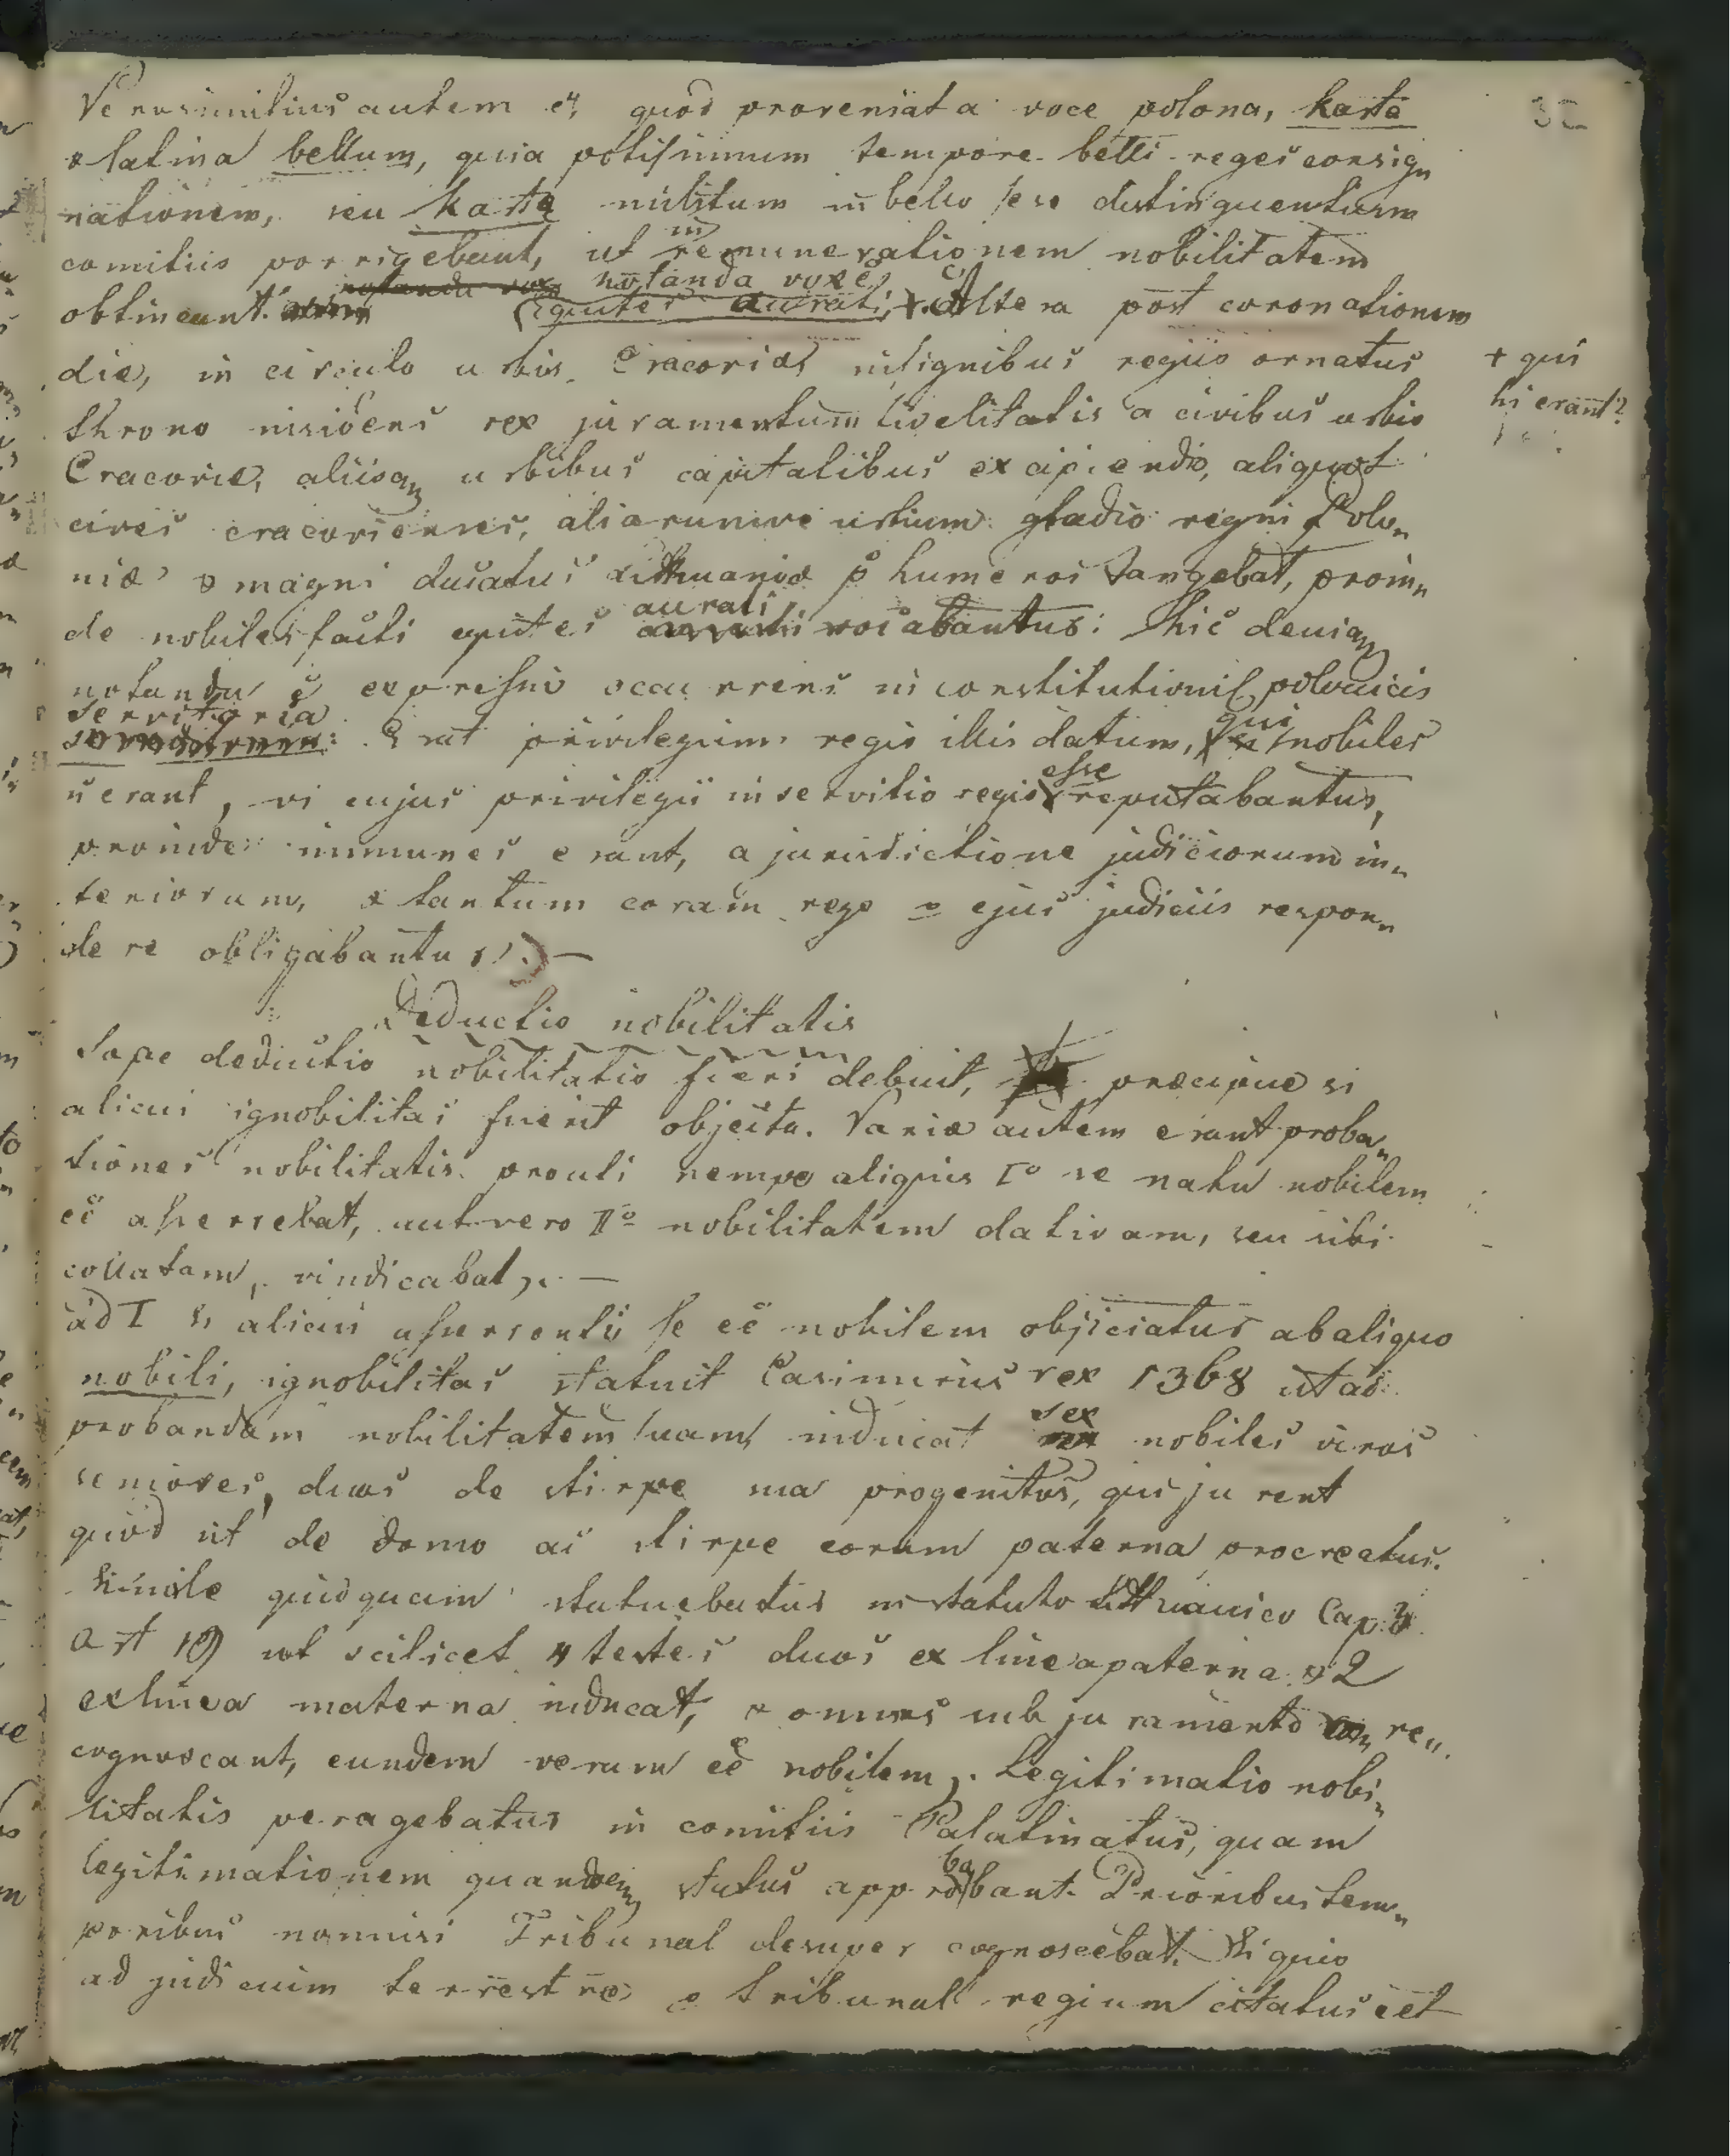 32
Verosimilius autem e, quod proveniat a voce polona, karta
& latina bellum, quia potissimum tempore belli reges consig„
nationem, seu karta militum in bello sese distinguentium
comitiis porrigebant, ut in remunerationem nobilitatem
obtineant. notanda voxe
Equites aurati, +. Altera post coronationem
die, in circulo urbis Cracoviæ insignibus regiis ornatus
+ qui
hi erant?
throno insidens rex juramentum fidelitatis a civibus urbis
Cracoviæ, aliisq urbibus capitalibus excipiendo, aliquot
cives cracovienses, aliarumve urbium gladio regni Polo„
niæ & magni ducatus Lithuaniæ p humeros tangebat, proin„
de nobiles facti equites aurati vocabantur: hic deniq
notandu e expressio occurrens in constitutionib polonicis
servitoria: Erat privilegium regis illis datum, qui nobiles
n erant, vi cujus privilegii in servitio regis esse reputabantur,
proinde immunes erant, a jurisdictione judiciorum in„
feriorum, & tantum coram rege & ejus judiciis respon„
dere obligabantur. —
Deductio nobilitatis
Sæpe deductio nobilitatis fieri debuit, præcipue si
alicui ignobilitas fuerit objecta. Variæ autem erant proba„
tiones nobilitatis prouti nempe aliquis I° se natu nobilem
ee asserebat, aut vero II° nobilitatem dativam, seu sibi
collatam, vindicabat. —
ad I Si alicui asserenti se ee nobilem objiciatur ab aliquo
nobili, ignobilitas statuit Casimirus rex 1368 ut ad
probandam nobilitatem suam inducat sex nobiles viros
seniores, duos de stirpe sua progenitos, qui jurent
quod sit de domo ac stirpe eorum paterna procreatus.
Simile quidquam statuebatur in statuto Lithuanico Cap. 3
Art 19 ut scilicet 4 testes duos ex linea paterna & 2
ex linea materna inducat, & omnes sub juramento re„
cognoscant, eundem verum ee nobilem. Legitimatio nobi„
litatis peragebatur in comitiis Palatinatus, quam
legitimationem quandoq status approbabant. Prioribus tem„
poribus nonnisi Tribunal desuper cognoscebat. Si quis
ad judicium terrestre & tribunal regium citatus eet